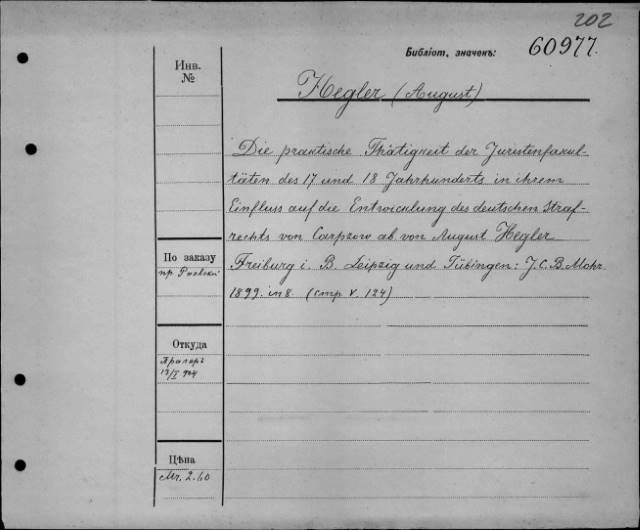 202
Библіот. значенъ:
60977.
Инв.
№
Hegler (August)
Die praktische Thätigkeit der Juristenfakul-
täten des 17 und 18 Jahrhunderts in ihrem
Einfluss auf die Entwicklung des deutschen Straf-
rechts von Carpzow ab. von August Hegler
Freiburg i. B. Leipzig und Tübingen: J. C. B. Mohr.
1899. in 8. (стр V. 124)
По заказу
пр.
Откуда
904
Цѣна
Mr. 2.60